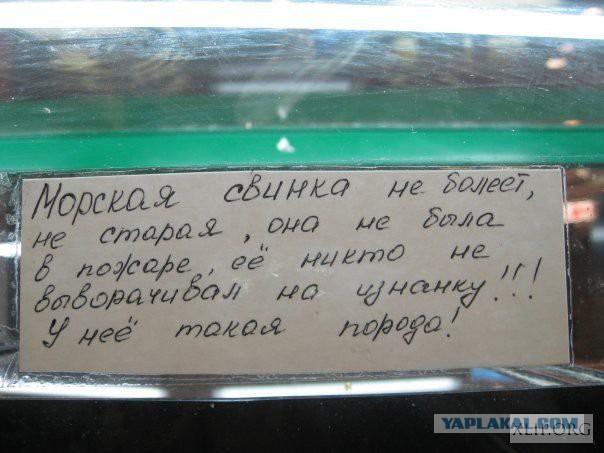 Морская свинка не болеет,
не старая, она не была
в пожаре, её никто не
выворачивал на изнанку!!!
У неё такая порода!
YAPLAKAL.COM
XLIT.ORG